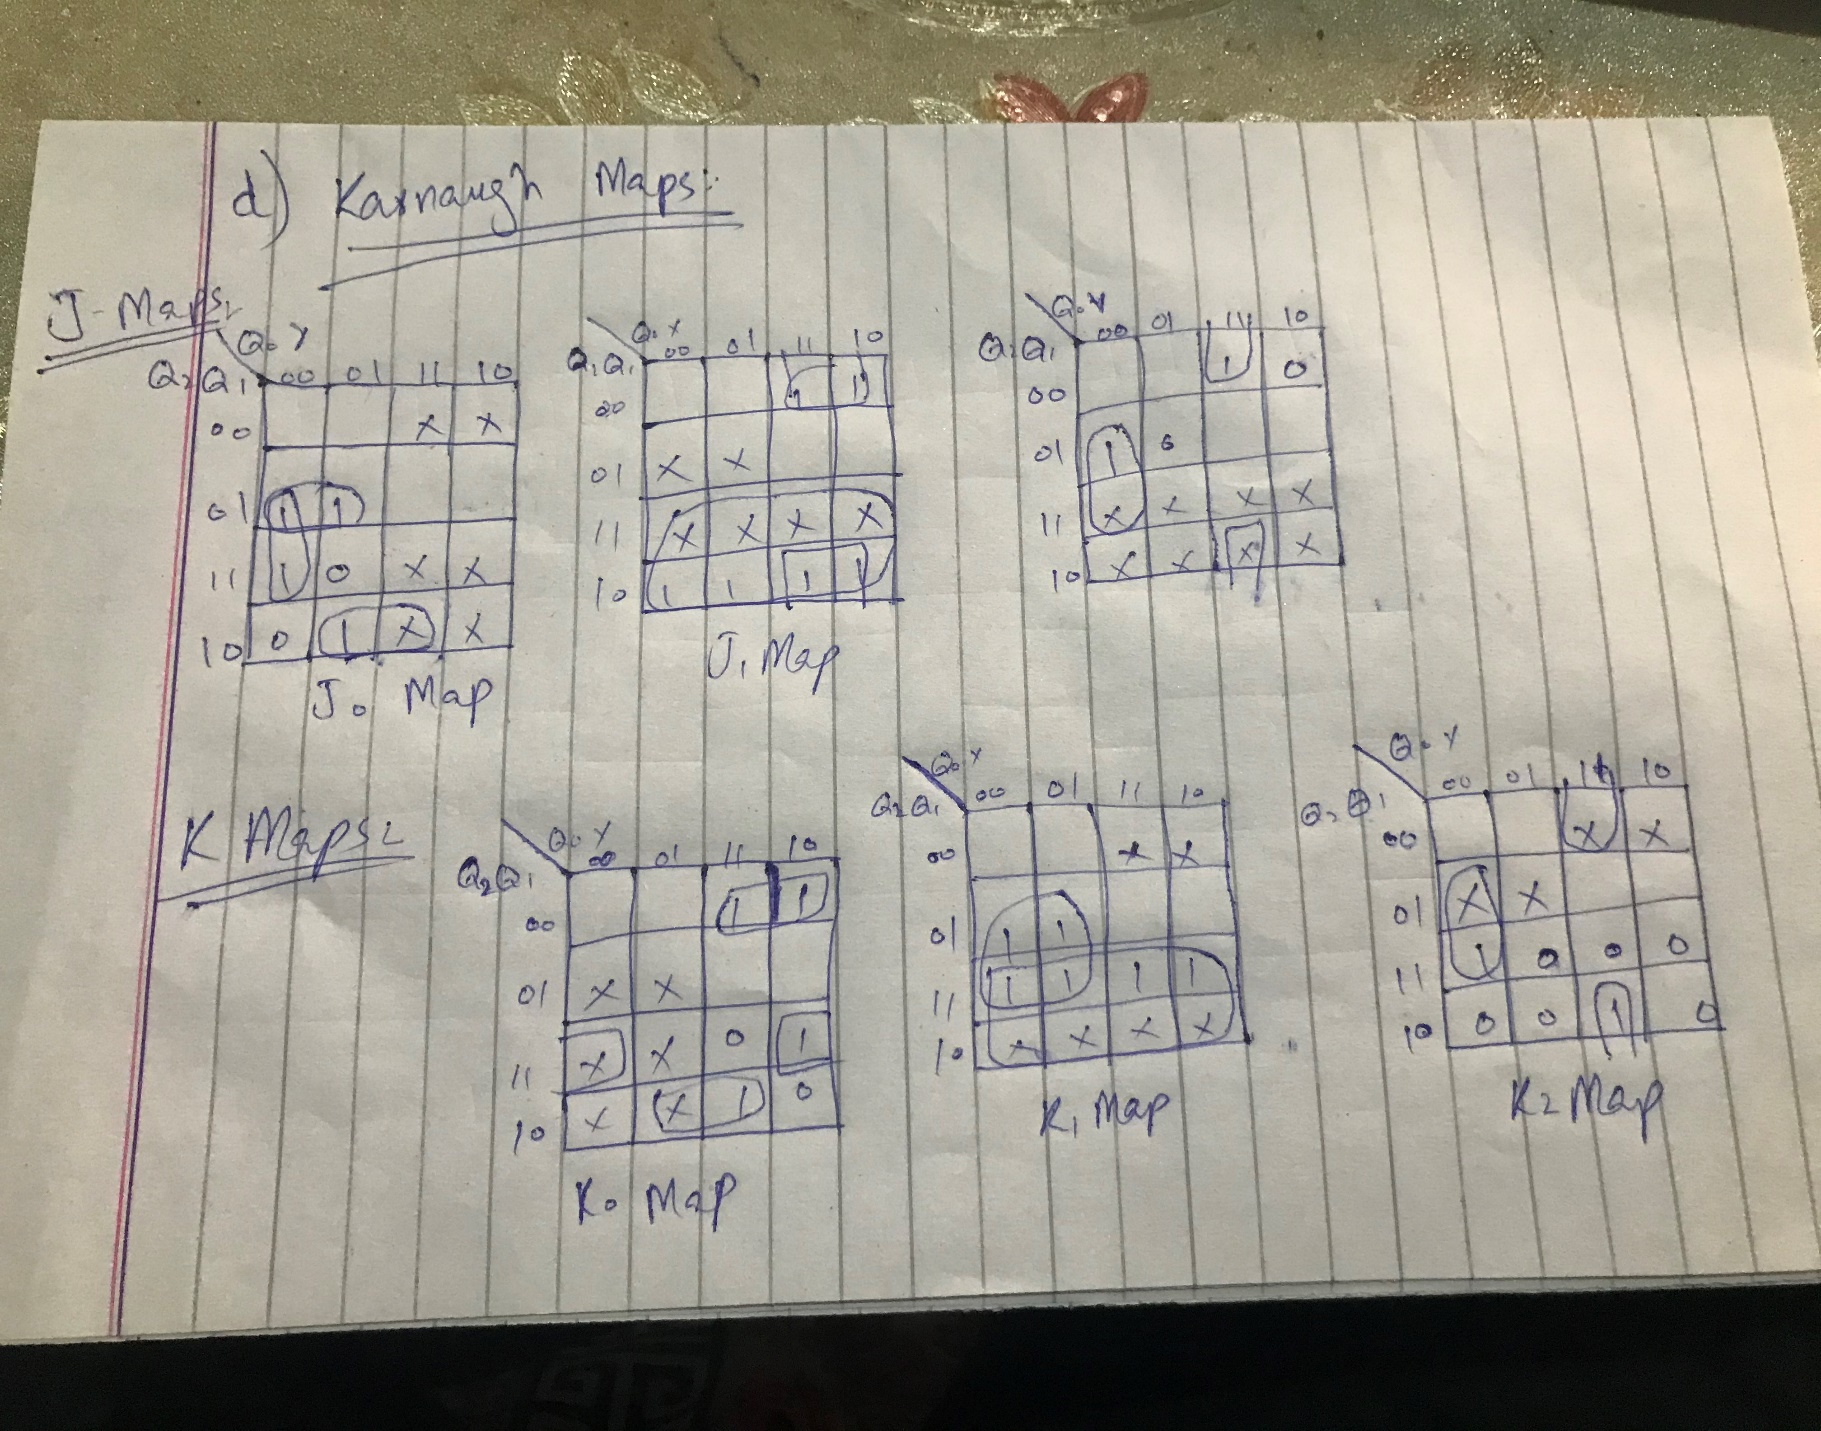 d) Karnaugh Maps:
J-Maps:
Q₀Y
Q₂Q₁ 00 01 11 10
00 X X
01 1 1
11 1 0 X X
10 0 1 X X
J₀ Map
Q₀Y
Q₁Q₁ 00 01 11 10
00 1 1
01 X X
11 X X X X
10 1 1 1 1
J₁ Map
Q₀Y
Q₂Q₁ 00 01 11 10
00 1 0
01 1 0
11 X X X X
10 X X X X
K Maps:
Q₀Y
Q₂Q₁ 00 01 11 10
00 1 1
01 X X
11 X X 0 1
10 X X 1 0
K₀ Map
Q₀Y
Q₂Q₁ 00 01 11 10
00 X X
01 1 1
11 1 1 1 1
10 X X X X
K₁ Map
Q₀Y
Q₂Q₁ 00 01 11 10
00 X X
01 X X
11 1 0 0 0
10 0 0 1 0
K₂ Map